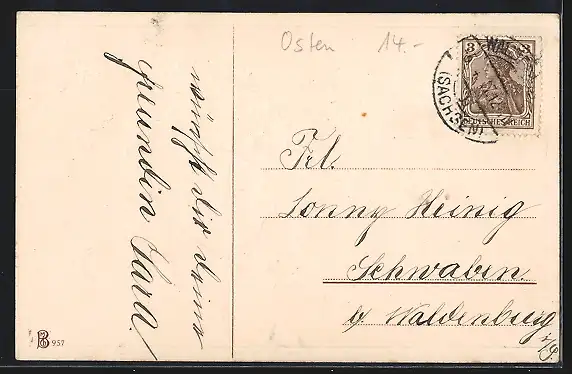 Osten 14.-
3 3
DEUTSCHES REICH
WAL
(SACHSEN)
wünscht dir deine
Freundin Clara
Frl.
Sonny Heinig
Schwaben
b/ Waldenburg
i/S.
B 957